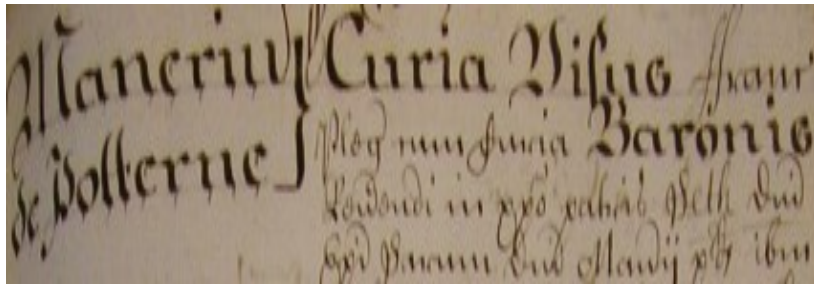 Manerium
de Potterne
Curia Visus ffranc
Pleg cum Curia Baronis
in xpo patris Seth
Sarum ibm